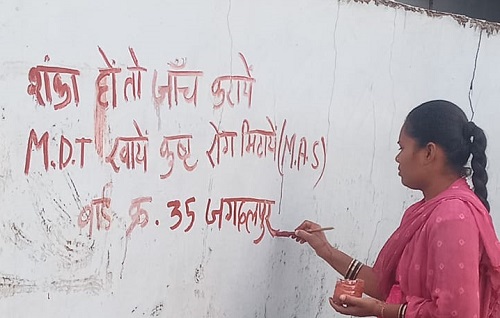 शंका हो तो जाँच करायें
M.D.T खायें कुष्ट रोग मिटायें (M.A.S)
वार्ड क्र. 35 जगदलपुर